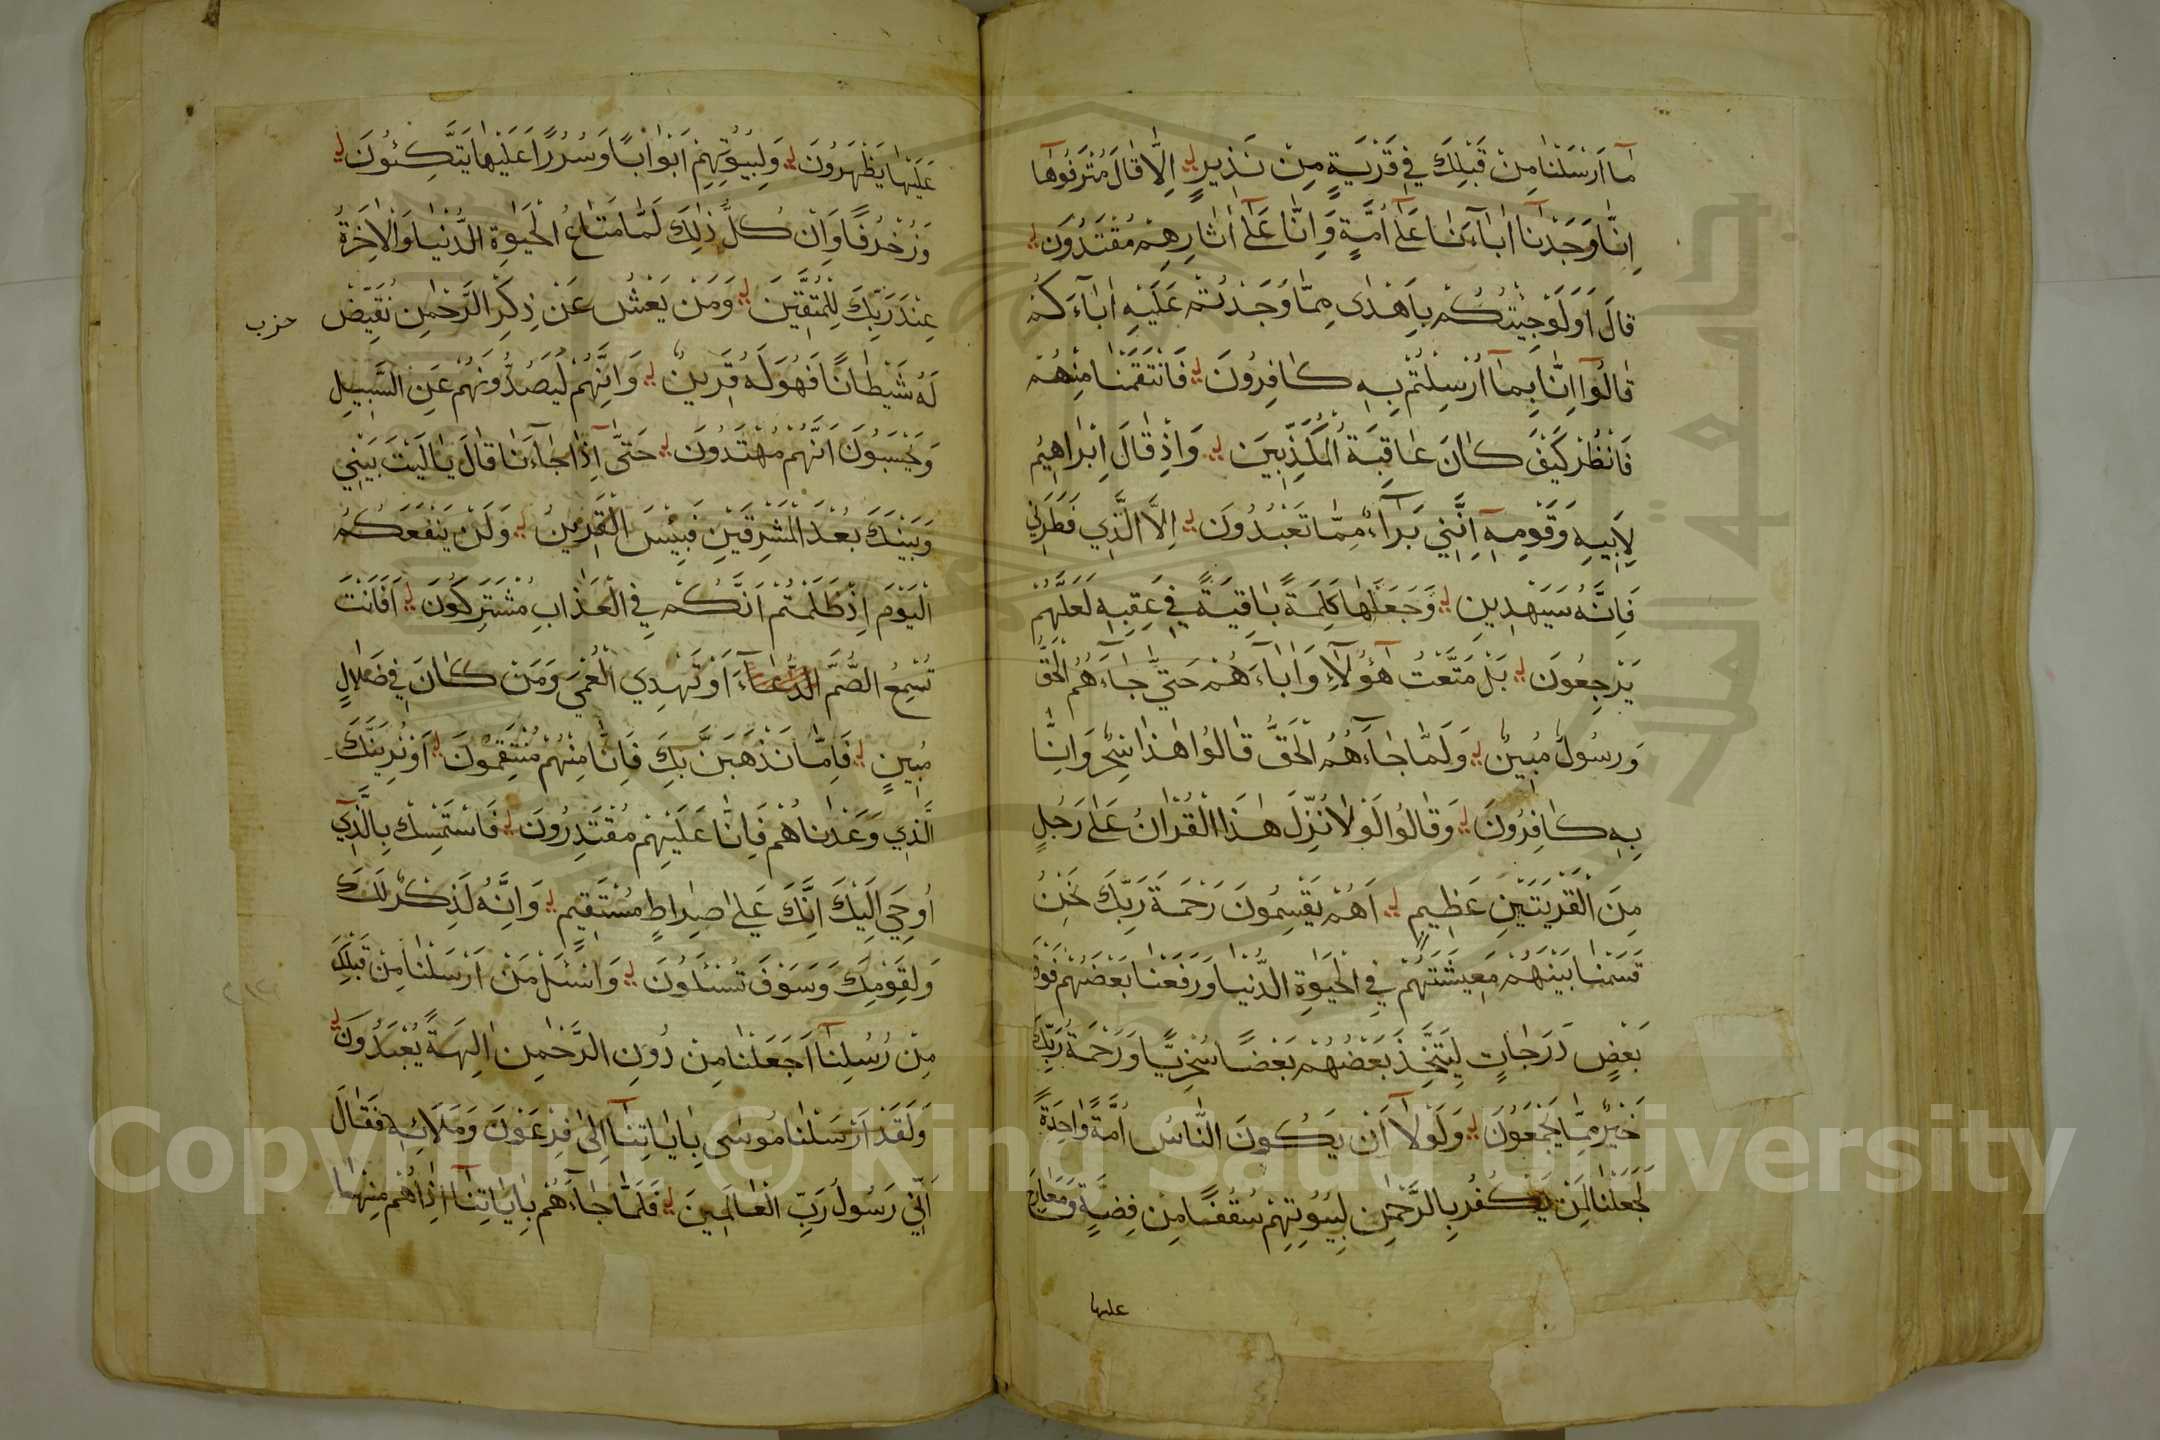 مَآ اَرْسَلْنَا مِنْ قَبْلِكَ فِي قَرْيَةٍ مِنْ نَذِيرٍ اِلَّا قَالَ مُتْرَفُوهَآ
اِنَّا وَجَدْنَآ اٰبَآءَنَا عَلٰٓى اُمَّةٍ وَاِنَّا عَلٰٓى اٰثَارِهِمْ مُقْتَدُونَ
قَالَ اَوَلَوْ جِئْتُكُمْ بِاَهْدٰى مِمَّا وَجَدْتُمْ عَلَيْهِ اٰبَآءَكُمْ
قَالُوٓا اِنَّا بِمَآ اُرْسِلْتُمْ بِهٖ كَافِرُونَ فَانْتَقَمْنَا مِنْهُمْ
فَانْظُرْ كَيْفَ كَانَ عَاقِبَةُ الْمُكَذِّبِينَ وَاِذْ قَالَ اِبْرَاهِيمُ
لِاَبِيهِ وَقَوْمِهٖٓ اِنَّنِي بَرَآءٌ مِمَّا تَعْبُدُونَ اِلَّا الَّذِي فَطَرَنِي
فَاِنَّهُ سَيَهْدِينِ وَجَعَلَهَا كَلِمَةً بَاقِيَةً فِي عَقِبِهٖ لَعَلَّهُمْ
يَرْجِعُونَ بَلْ مَتَّعْتُ هٰٓؤُلَآءِ وَاٰبَآءَهُمْ حَتّٰى جَآءَهُمُ الْحَقُّ
وَرَسُولٌ مُبِينٌ وَلَمَّا جَآءَهُمُ الْحَقُّ قَالُوا هٰذَا سِحْرٌ وَاِنَّا
بِهٖ كَافِرُونَ وَقَالُوا لَوْلَا نُزِّلَ هٰذَا الْقُرْاٰنُ عَلٰى رَجُلٍ
مِنَ الْقَرْيَتَيْنِ عَظِيمٍ اَهُمْ يَقْسِمُونَ رَحْمَةَ رَبِّكَ نَحْنُ
قَسَمْنَا بَيْنَهُمْ مَعِيشَتَهُمْ فِي الْحَيٰوةِ الدُّنْيَا وَرَفَعْنَا بَعْضَهُمْ فَوْقَ
بَعْضٍ دَرَجَاتٍ لِيَتَّخِذَ بَعْضُهُمْ بَعْضًا سُخْرِيًّا وَرَحْمَةُ رَبِّكَ
خَيْرٌ مِمَّا يَجْمَعُونَ وَلَوْلَآ اَنْ يَكُونَ النَّاسُ اُمَّةً وَاحِدَةً
لَجَعَلْنَا لِمَنْ يَكْفُرُ بِالرَّحْمٰنِ لِبُيُوتِهِمْ سُقُفًا مِنْ فِضَّةٍ وَمَعَارِجَ
عليها
عَلَيْهَا يَظْهَرُونَ وَلِبُيُوتِهِمْ اَبْوَابًا وَسُرُرًا عَلَيْهَا يَتَّكِئُونَ
وَزُخْرُفًا وَاِنْ كُلُّ ذٰلِكَ لَمَّا مَتَاعُ الْحَيٰوةِ الدُّنْيَا وَالْاٰخِرَةُ
عِنْدَ رَبِّكَ لِلْمُتَّقِينَ وَمَنْ يَعْشُ عَنْ ذِكْرِ الرَّحْمٰنِ نُقَيِّضْ
حزب
لَهُ شَيْطَانًا فَهُوَ لَهُ قَرِينٌ وَاِنَّهُمْ لَيَصُدُّونَهُمْ عَنِ السَّبِيلِ
وَيَحْسَبُونَ اَنَّهُمْ مُهْتَدُونَ حَتّٰٓى اِذَا جَآءَنَا قَالَ يَالَيْتَ بَيْنِي
وَبَيْنَكَ بُعْدَ الْمَشْرِقَيْنِ فَبِئْسَ الْقَرِينُ وَلَنْ يَنْفَعَكُمُ
الْيَوْمَ اِذْ ظَلَمْتُمْ اَنَّكُمْ فِي الْعَذَابِ مُشْتَرِكُونَ اَفَاَنْتَ
تُسْمِعُ الصُّمَّ الدُّعَآءَ اَوْ تَهْدِي الْعُمْيَ وَمَنْ كَانَ فِي ضَلَالٍ
مُبِينٍ فَاِمَّا نَذْهَبَنَّ بِكَ فَاِنَّا مِنْهُمْ مُنْتَقِمُونَ اَوْ نُرِيَنَّكَ
الَّذِي وَعَدْنَاهُمْ فَاِنَّا عَلَيْهِمْ مُقْتَدِرُونَ فَاسْتَمْسِكْ بِالَّذِٓي
اُوحِيَ اِلَيْكَ اِنَّكَ عَلٰى صِرَاطٍ مُسْتَقِيمٍ وَاِنَّهُ لَذِكْرٌ لَكَ
وَلِقَوْمِكَ وَسَوْفَ تُسْئَلُونَ وَاسْئَلْ مَنْ اَرْسَلْنَا مِنْ قَبْلِكَ
مِنْ رُسُلِنَآ اَجَعَلْنَا مِنْ دُونِ الرَّحْمٰنِ اٰلِهَةً يُعْبَدُونَ
وَلَقَدْ اَرْسَلْنَا مُوسٰى بِاٰيَاتِنَآ اِلٰى فِرْعَوْنَ وَمَلَائِهٖ فَقَالَ
اِنِّي رَسُولُ رَبِّ الْعَالَمِينَ فَلَمَّا جَآءَهُمْ بِاٰيَاتِنَآ اِذَا هُمْ مِنْهَا
جامعة الملك
Copyright © King Saud University